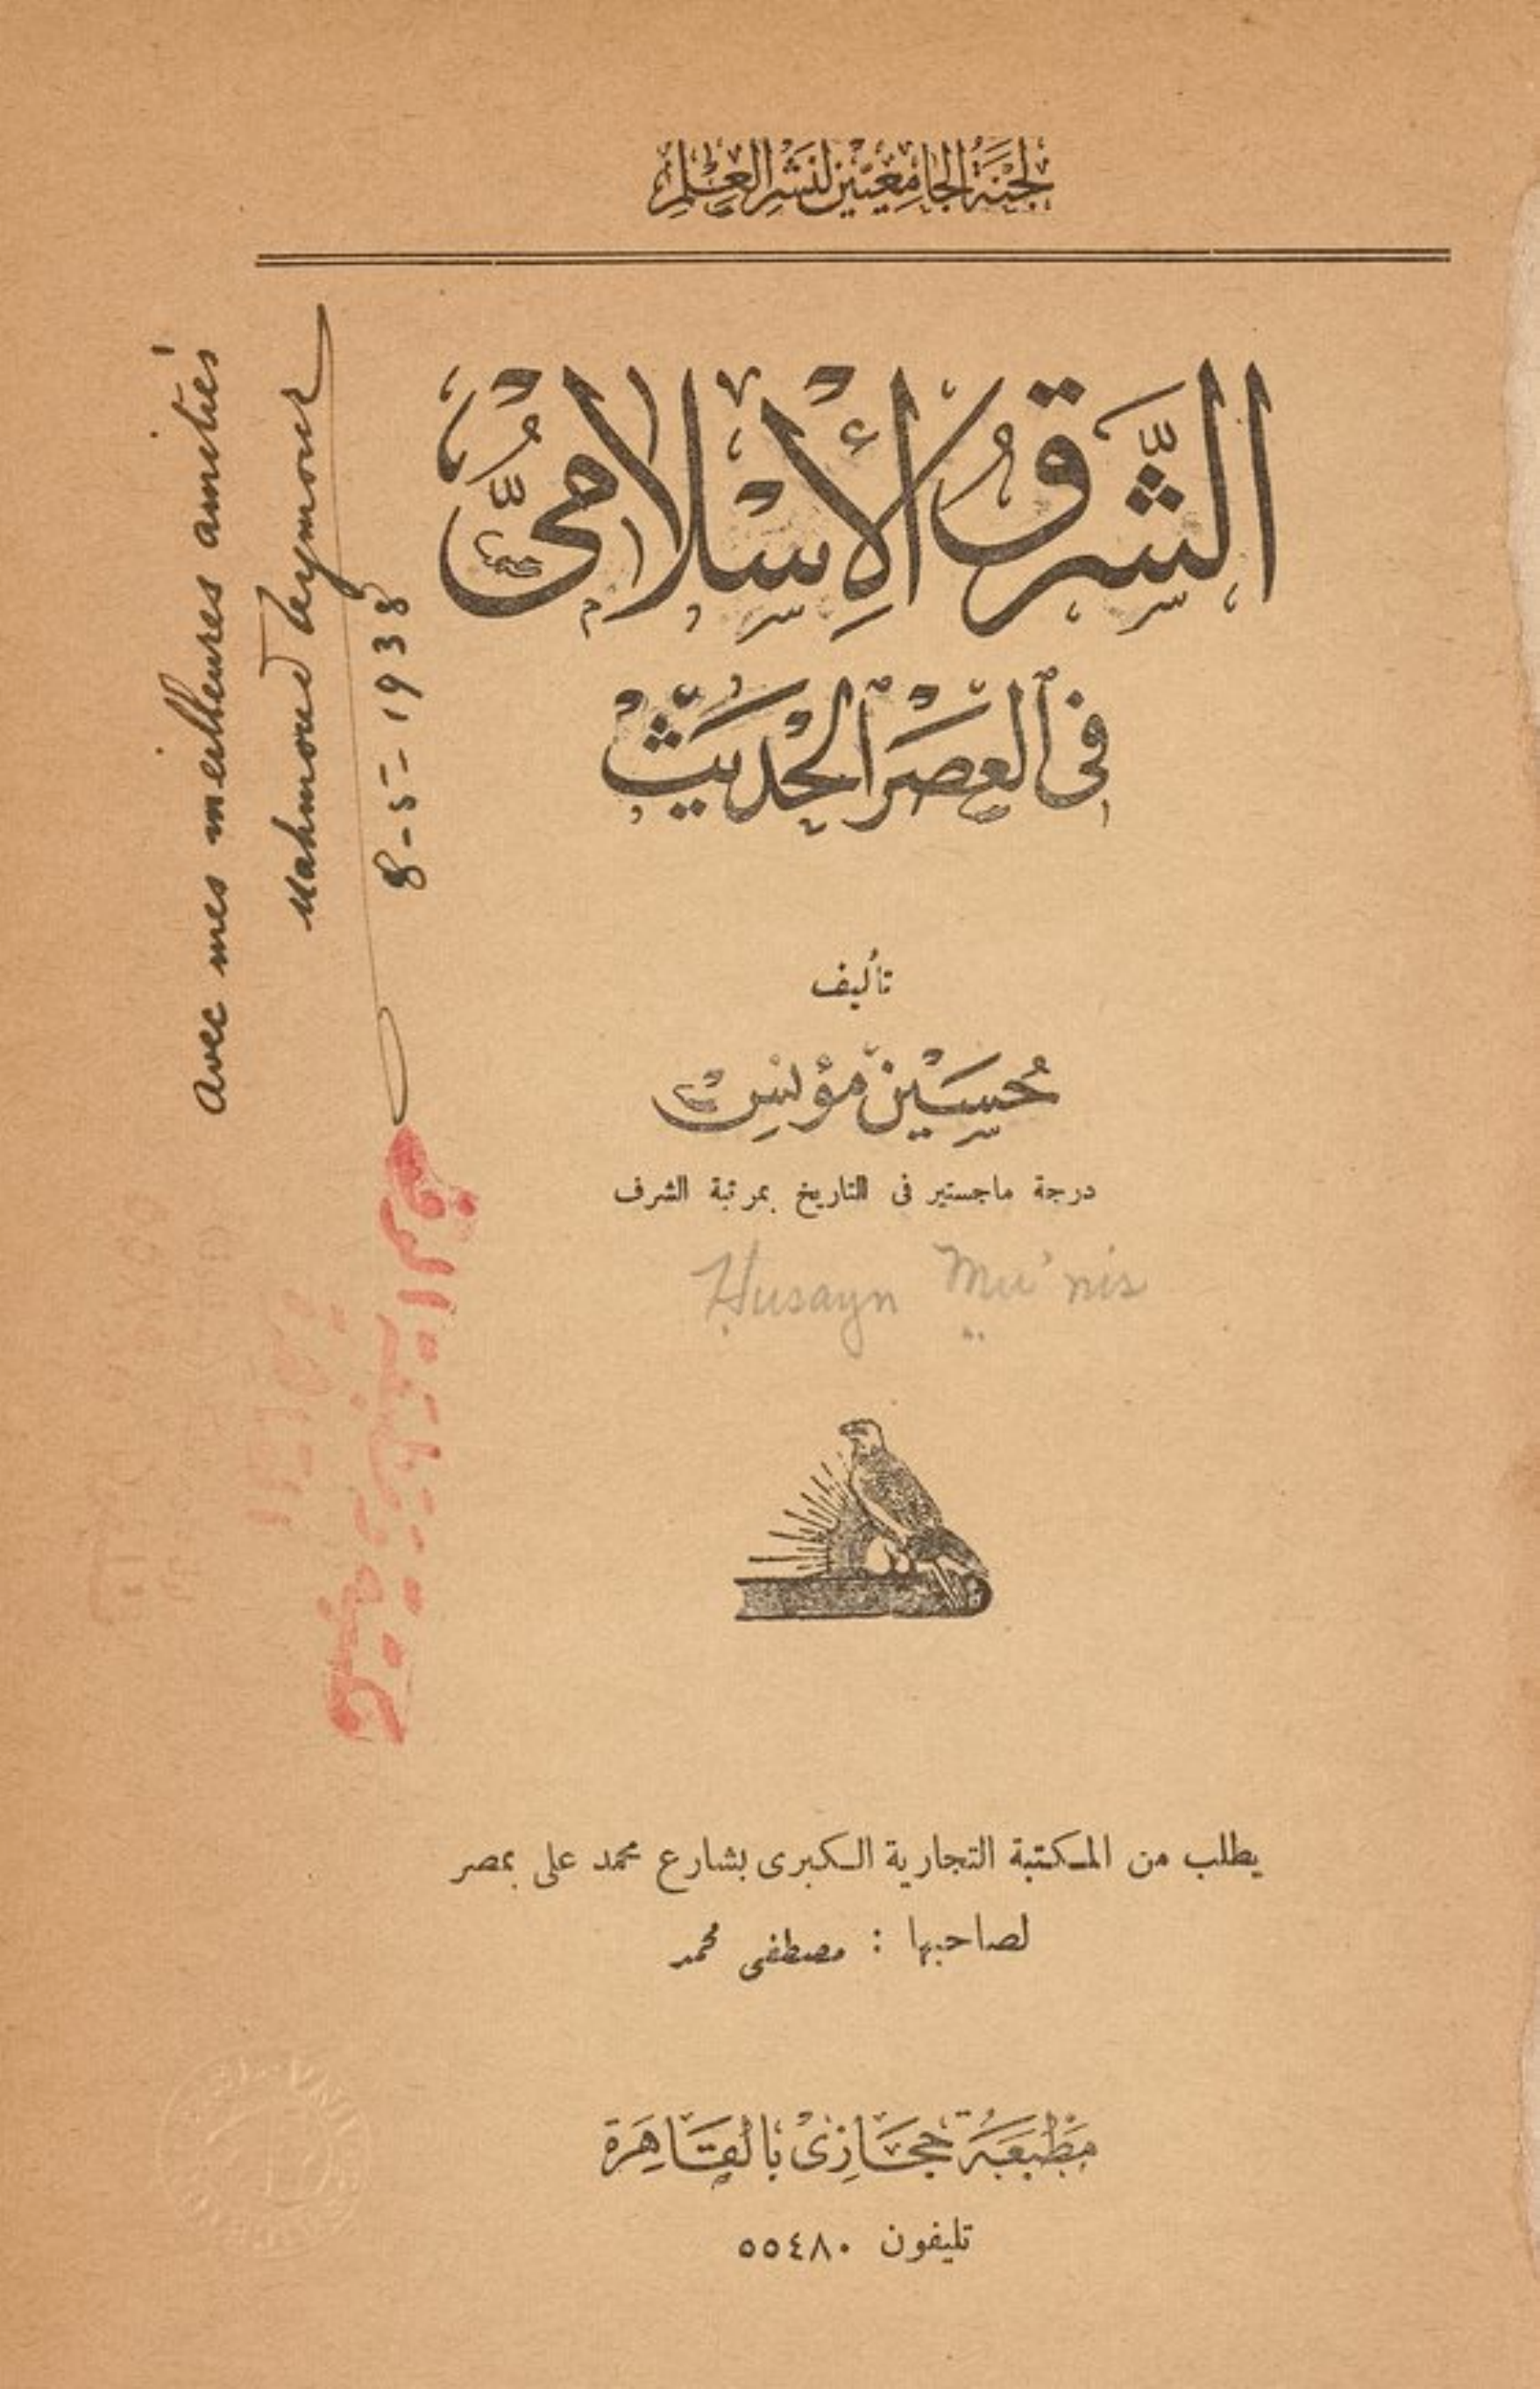 لجنة الجامعيين لنشر العلم
الشرق الإسلامي
في العصر الحديث
تأليف
حسين مؤنس
درجة ماجستير فى التاريخ بمرتبة الشرف
Husayn Mu'nis
يطلب من المكتبة التجارية الكبرى بشارع محمد على بمصر
لصاحبها : مصطفى محمد
مطبعة حجازى بالقاهرة
تليفون ٥٥٤٨٠
Avec mes meilleures amitiés
Mahmoud Teymour
8-5-1938